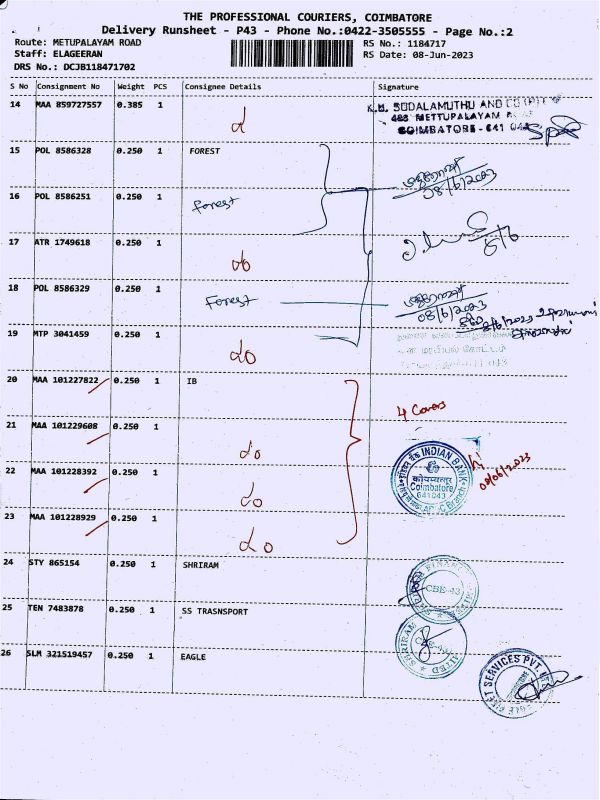 THE PROFESSIONAL COURIERS, COIMBATORE
Delivery Runsheet - P43 - Phone No.:0422-3505555 - Page No.:2
Route: METUPALAYAM ROAD RS No.: 1184717
Staff: ELAGEERAN RS Date: 08-Jun-2023
DRS No.: DCJB118471702
S No Consignment No Weight PCS Consignee Details Signature
14 MAA 859727557 0.385 1
K.M. SUDALAMUTHU AND CO
488 METTUPALAYAM
COIMBATORE - 641 043
15 POL 8586328 0.250 1 FOREST
08/6/2023
16 POL 8586251 0.250 1 Forest
17 ATR 1749618 0.250 1 do
18 POL 8586329 0.250 1 Forest
08/6/2023
19 MTP 3041459 0.250 1 do
20 MAA 101227822 0.250 1 IB
4 Covers
21 MAA 101229608 0.250 1 do
INDIAN BANK
कोयम्बत्तूर
Coimbatore
641043
08/06/2023
22 MAA 101228392 0.250 1 do
23 MAA 101228929 0.250 1 do
24 STY 865154 0.250 1 SHRIRAM
CBE-43
25 TEN 7483878 0.250 1 SS TRASNSPORT
SHRIRAM
26 SLM 321519457 0.250 1 EAGLE
SERVICES PVT.